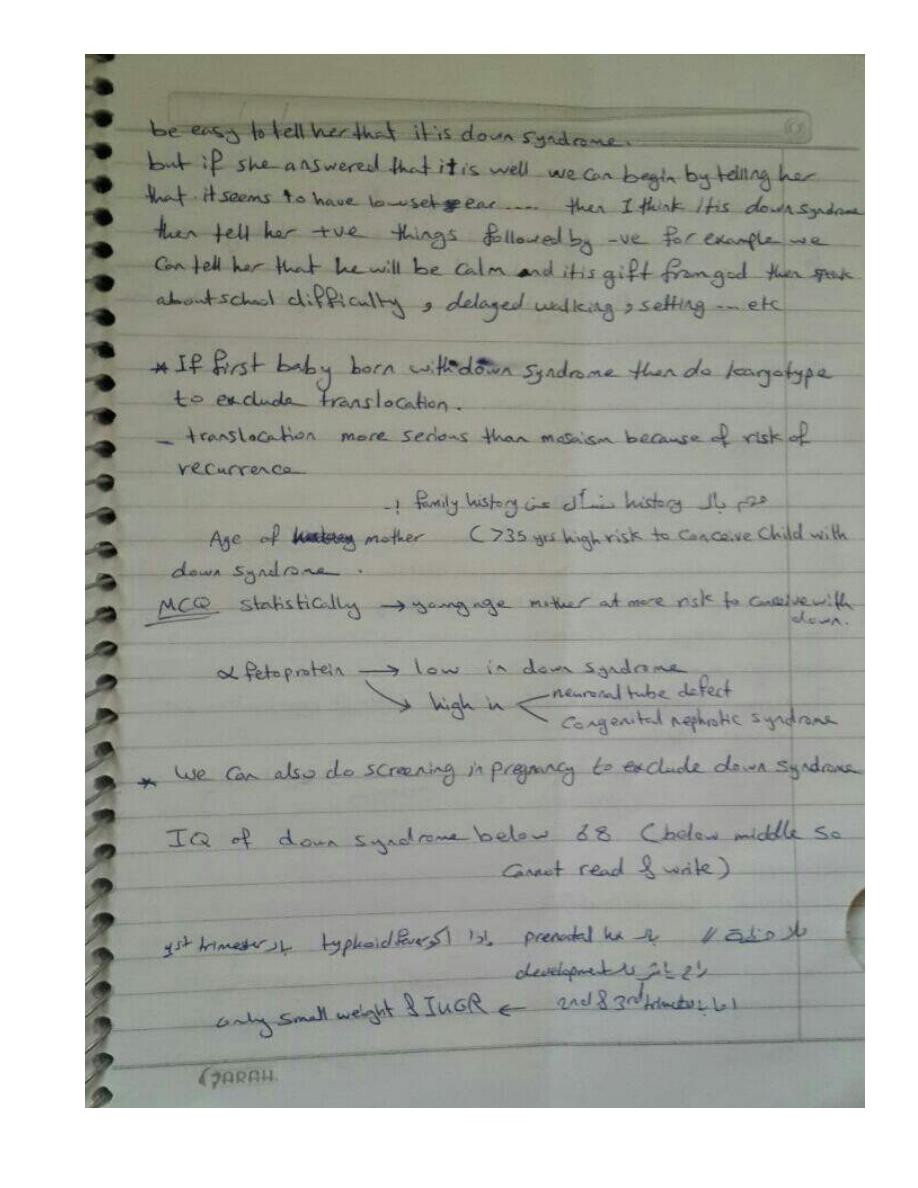 be easy to tell her that it is down syndrome.
but if she answered that it is well we can begin by telling her
that it seems to have lowset ear .... then I think it is down syndrome
then tell her +ve things followed by -ve for example we
can tell her that he will be calm and it is gift from god then
about school difficulty , delayed walking , setting .... etc
* If first baby born with down syndrome then do karyotype
to exclude translocation.
- translocation more serious than mosaism because of risk of
recurrence
بال history منسأل عن family history :-
Age of mother ( >35 yrs high risk to conceive child with
down syndrome .
MCQ statistically → young age mother at more risk to conceive with
down.
α fetoprotein → low in down syndrome
↘ high in neuronal tube defect
congenital nephrotic syndrome
* We can also do screening in pregnancy to exclude down syndrome
IQ of down syndrome below 68 ( below middle so
cannot read & write )
ملاحظة // بال prenatal hx اذا typhoid fever بال 1st trimester
راح يأثر عال development
اما ب 2nd & 3rd trimester ← only small weight & IUGR
SARAH.